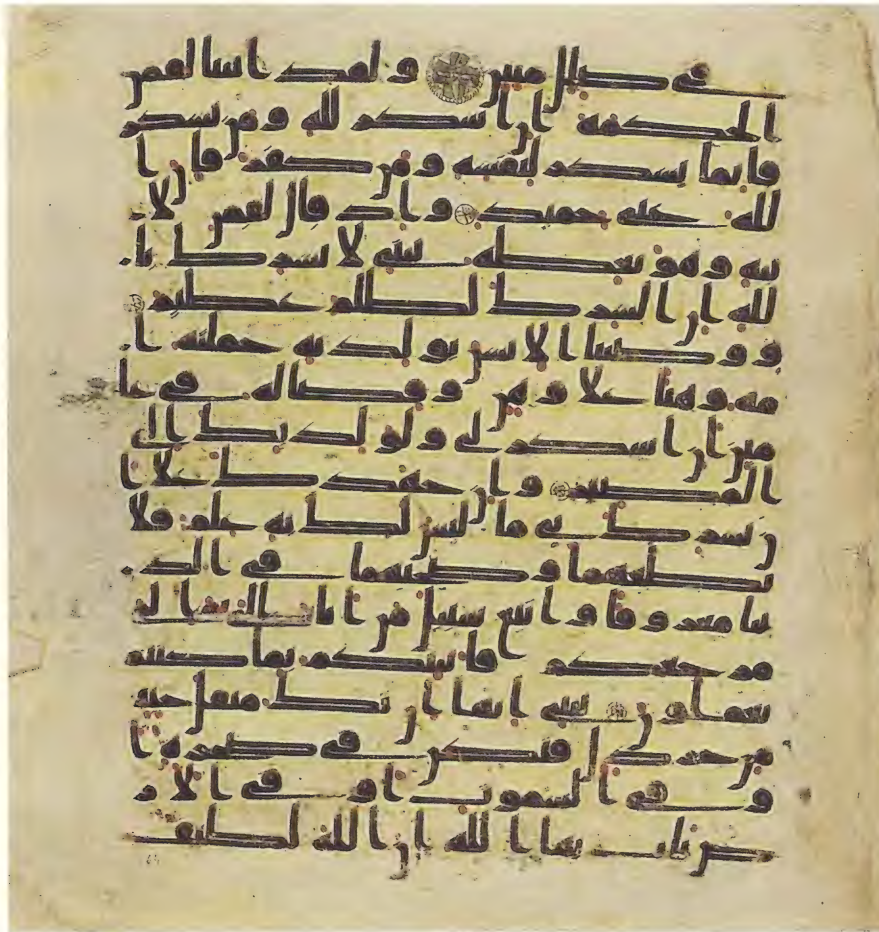 في ضلل مبين ولقد اتينا لقمن
الحكمة ان اشكر لله ومن يشكر
فانما يشكر لنفسه ومن كفر فان ا
لله غني حميد واذ قال لقمن لا
بنه وهو يعظه يبني لا تشرك با
لله ان الشرك لظلم عظيم
ووصينا الانسن بولديه حملته ا
مه وهنا علا وهن وفصاله في عا
مين ان اشكر لي ولولديك الي
المصير وان جهدك علا ا
ن تشرك بي ما ليس لك به علم فلا
تطعهما وصحبهما في الد
نيا معروفا واتبع سبيل من اناب الي ثم الي
مرجعكم فانبيكم بما كنتم
تعملون يبني انها ان تك مثقل حبة
من خردل فتكن في صخرة ا
و في السموت او في الار
ض يات بها الله ان الله لطيف